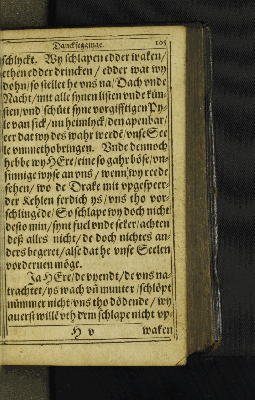 Dancksegginge. 105
schlyckt. Wy schlapen edder waken/
ethen edder drincken / edder wat wy
dohn/so stellet he vns na/Dach vnde
Nacht/mit alle synen listen vnde kün-
sten/vnd schütt syne vorgifftigen Py-
le van sick/nu heimlyck/den apenbar/
eer dat wy des wahr werdē/vnse See
le vmmethobringen. Vnde dennoch
hebbe wy HEre/eine so gahr böse/vn-
sinnige wyse an vns / wenn/wy reede
sehen/ wo de Drake mit vpgesperr-
der Kehlen ferdich ys / vns tho vor-
schlingēde/So schlape wy doch nicht
desto min/synt fuel vnde seker/achten
deß alles nicht/de doch nichtes an-
ders begeret/alse dat he vnse Seelen
vorderuen möge.
Ja HEre/de vyendt/de vns na-
trachtet/ys wach vñ munter/schlöpt
nümmer nicht/vns tho dödende / wy
auerst willē vth dem schlape nicht vp-
H v waken